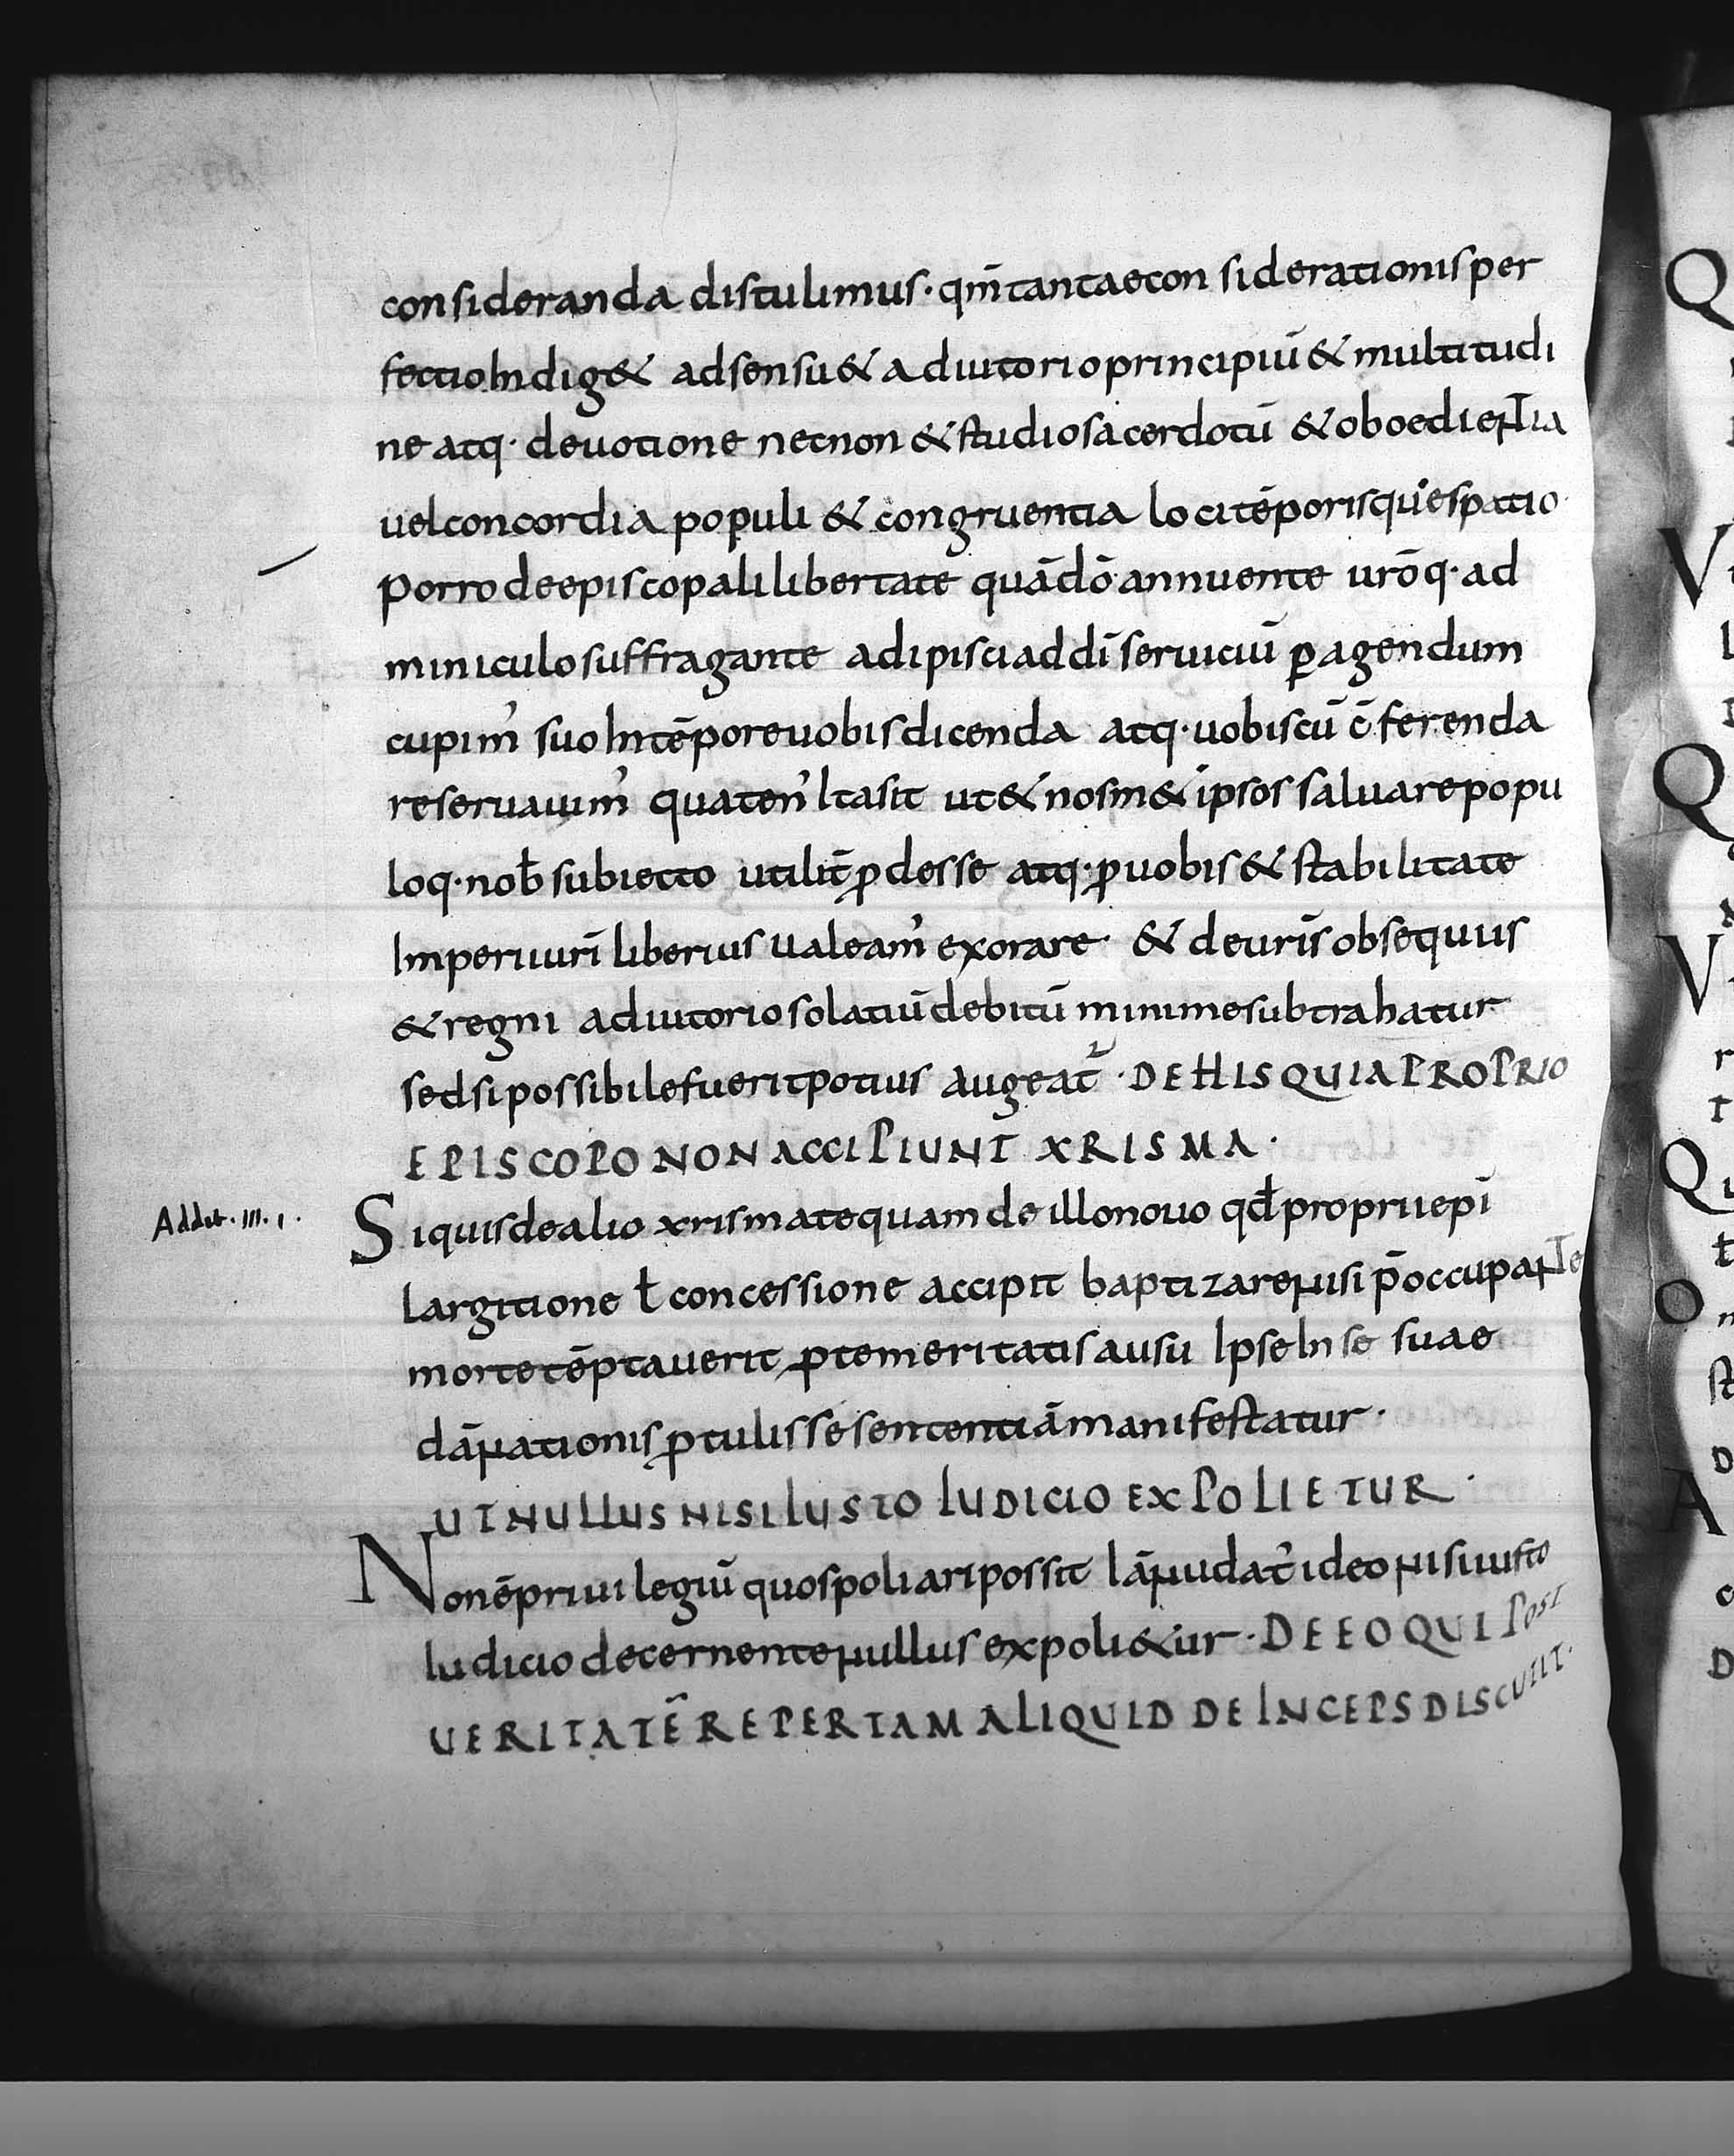 consideranda distulimus· qm̄ tanta econsiderationis per
fectio Indig& adsensu & adiutorio principiū & multitudi
ne atq· deuotione necnon & studio sacerdotū & oboedientia
uel concordia populi & congruentia loci tēporisqu'e spatio·
Porro de episcopali libertate quā dō annuente ur̄oq· ad
miniculo suffragante adipisci ad dī seruiciū ꝑagendum
cupim' suo In tēpore uobis dicenda atq· uobiscū c̄ferenda
reseruauim' quaten' Ita sit ut & nosm& ipsos saluare popu
loq· nob̄ subiecto utilit̄ ꝓdesse atq· ꝓ uobis & stabilitate
Imperii uri̅ liberius ualeam' exorare· & de uri̅s obsequiis
& regni adiutorio solatiū debitū minime subtrahatur
sed si possibile fuerit potius augeat̄ · DE HIS QUI A PROPRIO
EPISCOPO NON ACCIPIUNT XRISMA·
Addit· III· I·
Siquis de alio xrismate quam de illo nouo qđ proprii epī
largitione ł concessione accipit baptizare nisi p̄occupante
morte tēptauerit ꝓ temeritatis ausu Ipse In se suae
dānationis ꝓtulisse sententiā manifestatur·
UT NULLUS NISI IUSTO IUDICIO EXPOLIETUR·
Non ē priuilegiū quo spoliari possit Iā nudat' ideo nisi iusto
Iudicio decernente nullus expoli&ur· DE EO QUI POST
UERITATĒ REPERTAM ALIQUID DEINCEPS DISCUTIT·
Q
V
Q
V
Q
O
A